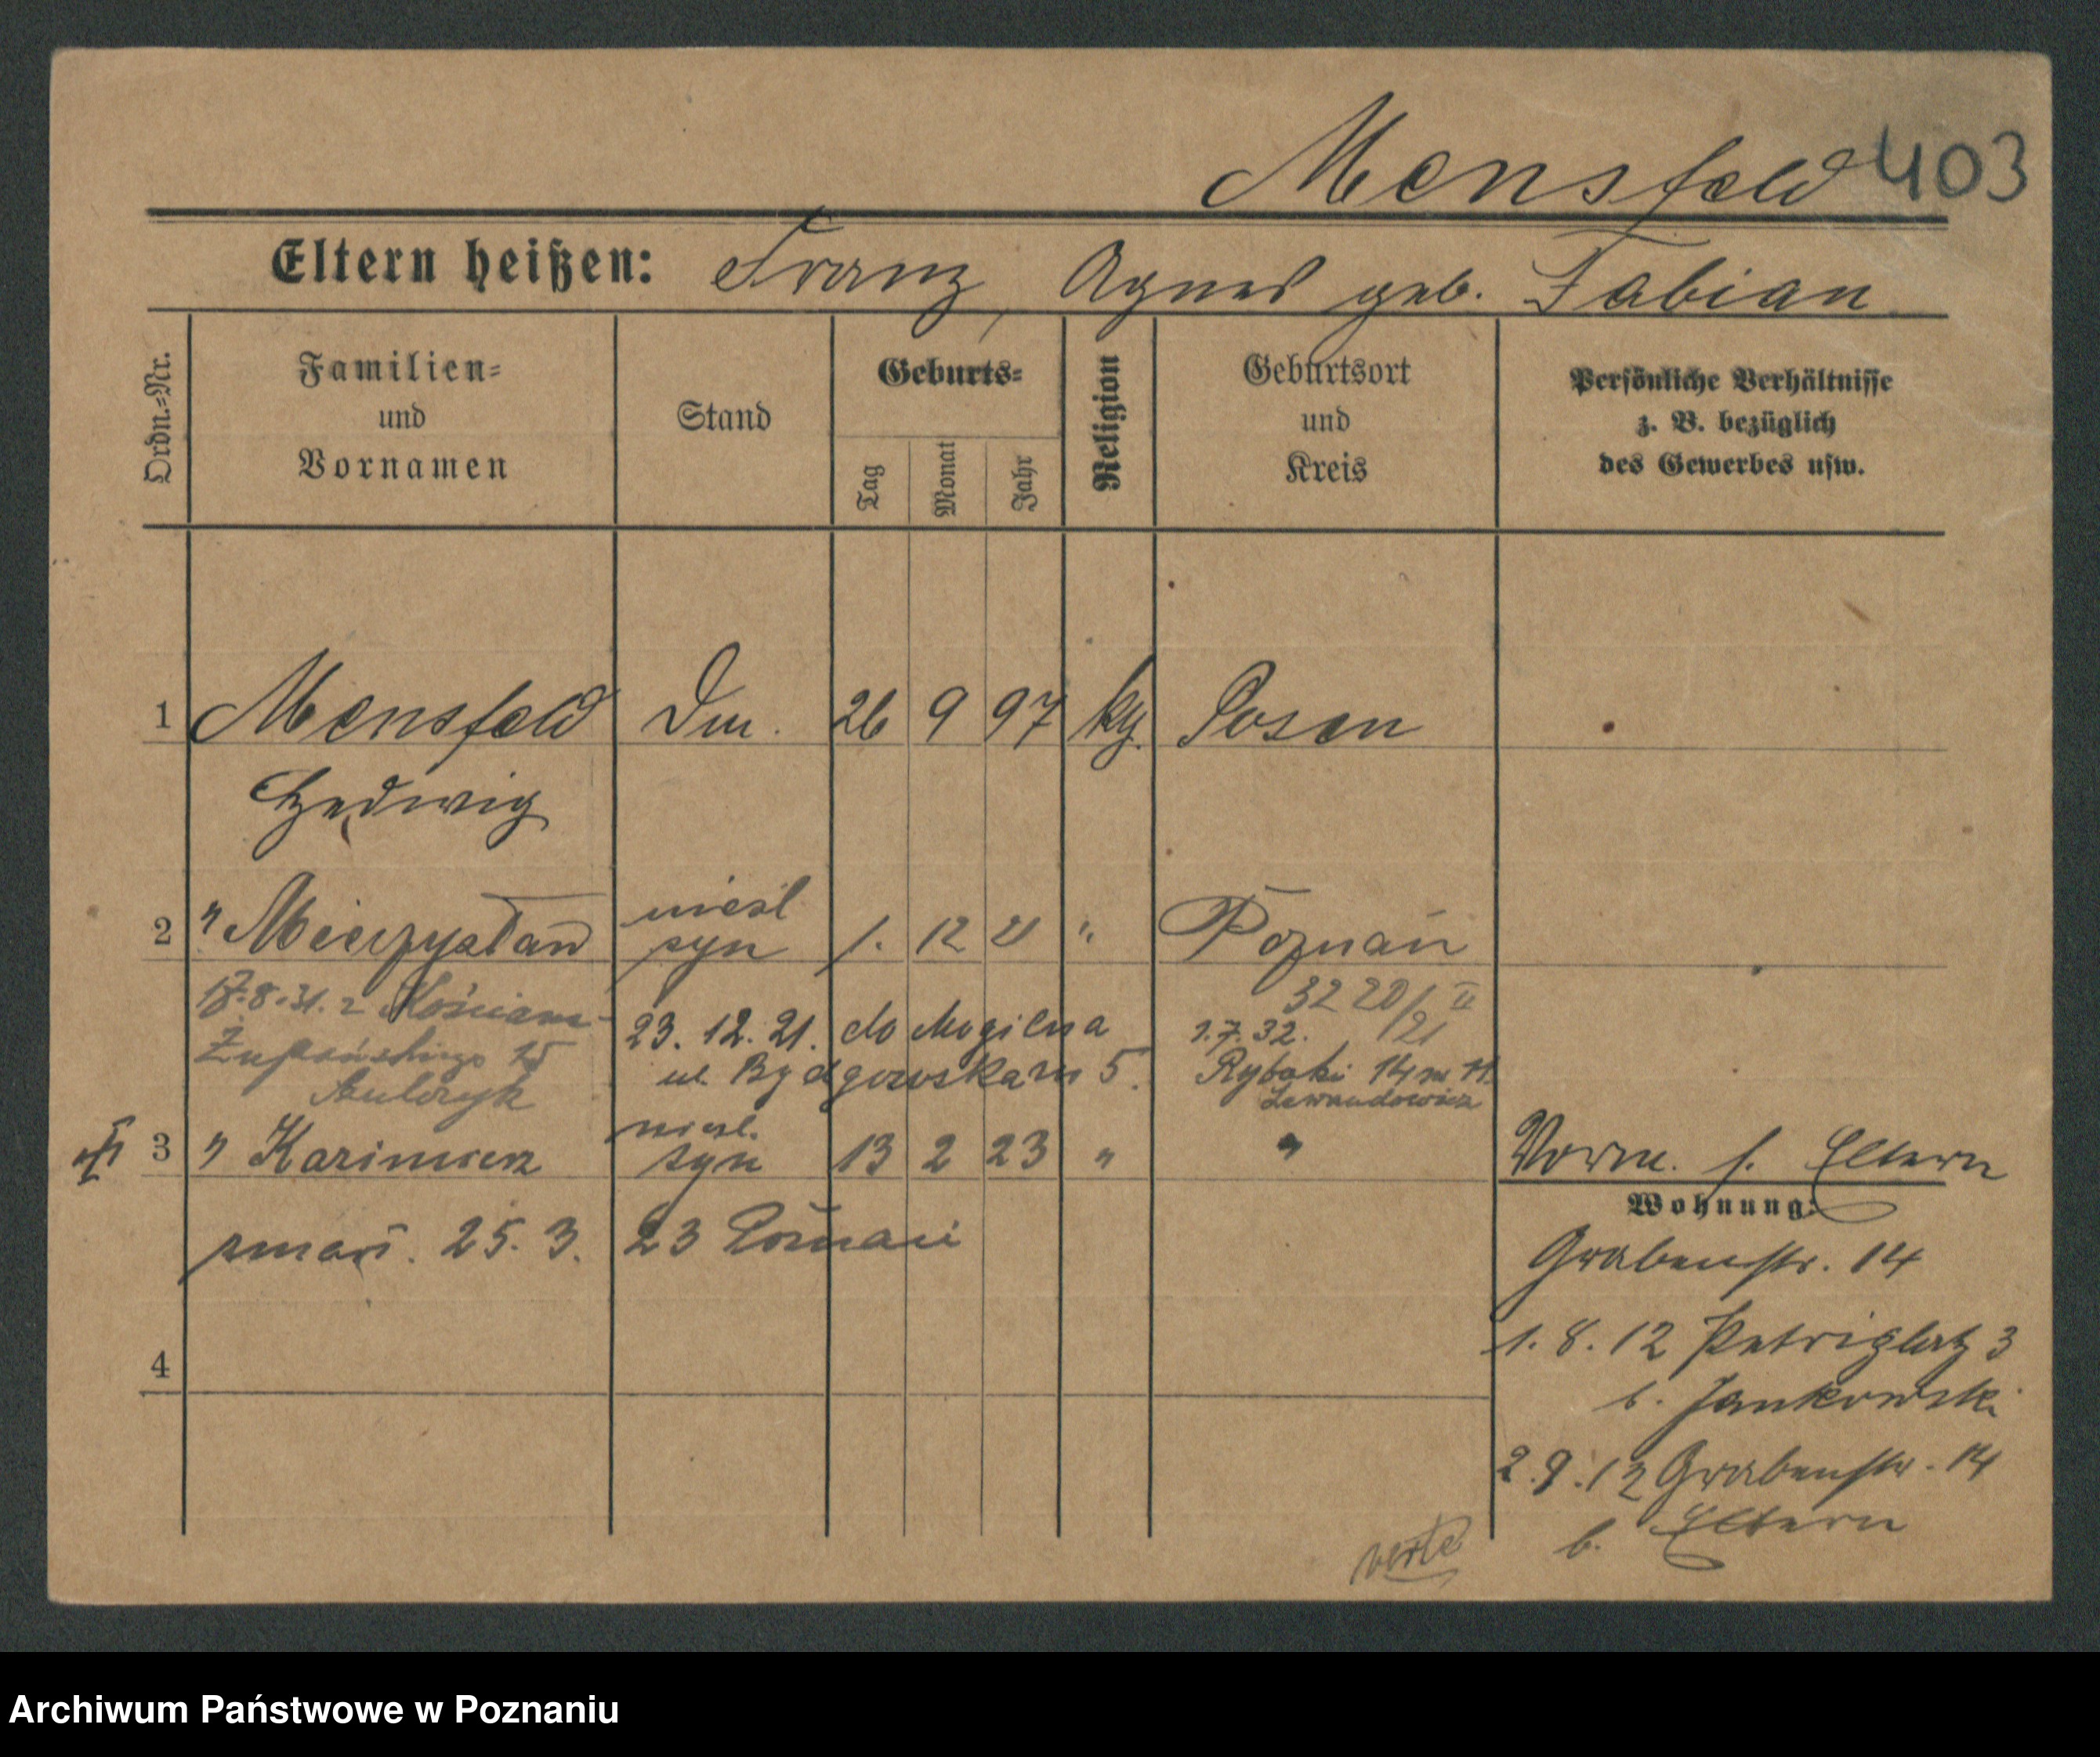 Mensfeld 403
Eltern heißen: Franz, Agnes geb. Fabian
Ordn.=Nr.
Familien=
und
Vornamen
Stand
Geburts=
Tag
Monat
Jahr
Religion
Geburtsort
und
Kreis
Persönliche Verhältnisse
z. B. bezüglich
des Gewerbes usw.
1 Mensfeld 26 9 97 Posen
Hedwig
2 " Mieczysław nieśl syn 1. 12 21 " Poznań
17.8.31. z Kościana
Żupańskiego 15
23. 12. 21. do Mogilna
ul. Bydgowska 5.
3220/II
21
1.7.32.
Rybaki 14 m 11.
Lewandowicz
3 " Kazimierz nieśl. syn 13 2 23 " "
zmarł. 25. 3. 23 Poznań
4
Vorm. s. Eltern
Wohnung:
Grabenstr. 14
1. 8. 12 Petriplatz 3
b. Jankowski
2. 9. 12 Grabenstr. 14
b. Eltern
verte
Archiwum Państwowe w Poznaniu